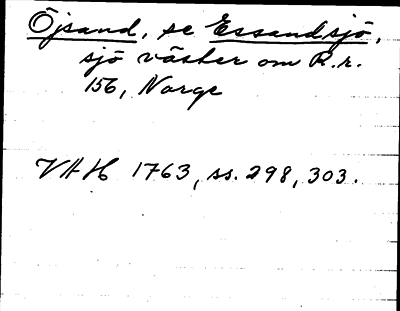 Öjsand, se Essandsjö,
sjö väster om R.r.
156, Norge
VAH 1763, ss. 298, 303.